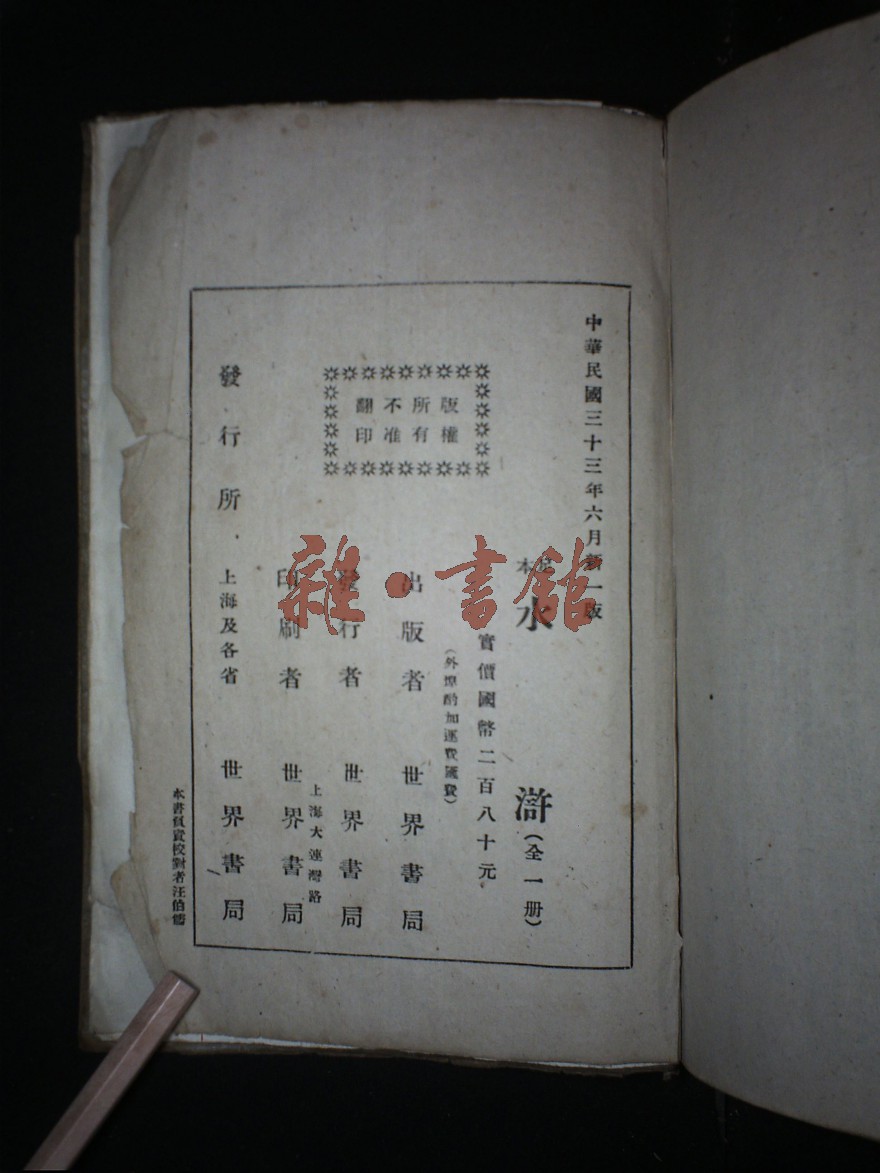 中華民國三十三年六月新一版
足本水滸（全一册）
實價國幣二百八十元
（外埠酌加運費匯費）
版權
所有
不准
翻印
出版者 世界書局
發行者 世界書局
上海大連灣路
印刷者 世界書局
發行所 上海及各省 世界書局
本書負責校對者汪伯
雜·書館